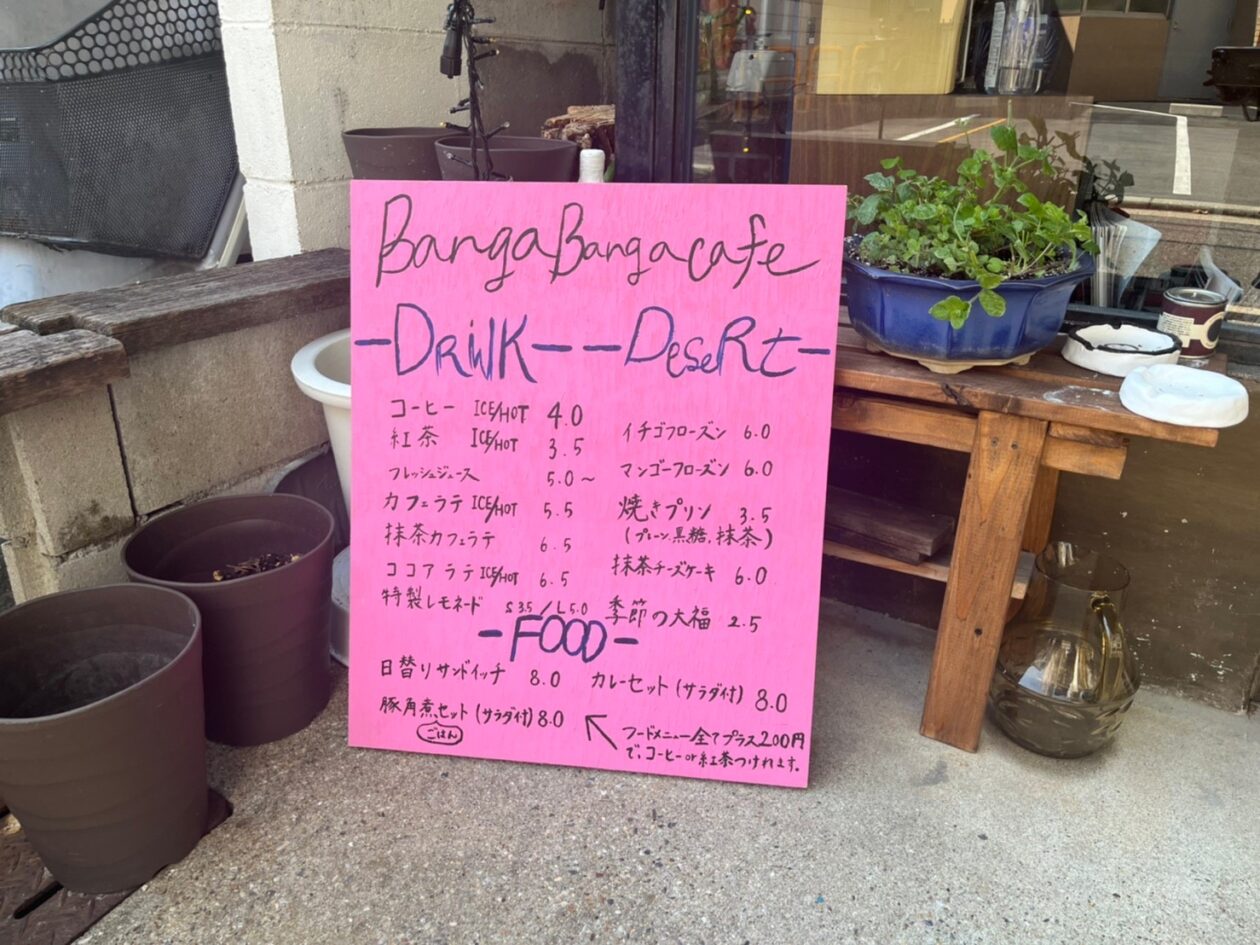 BangaBangacafe
-DRiNK-
コーヒー ICE/HOT 4.0
紅茶 ICE/HOT 3.5
フレッシュジュース 5.0～
カフェラテ ICE/HOT 5.5
抹茶カフェラテ 6.5
ココアラテ ICE/HOT 6.5
特製レモネード S 3.5 / L 5.0
-DeseRt-
イチゴフローズン 6.0
マンゴーフローズン 6.0
焼きプリン 3.5
(プレーン、黒糖、抹茶)
抹茶チーズケーキ 6.0
季節の大福 2.5
-FOOD-
日替りサンドイッチ 8.0
カレーセット (サラダ付) 8.0
豚角煮セット (サラダ付) 8.0
ごはん
フードメニュー全てプラス200円
で、コーヒーor紅茶つけれます。